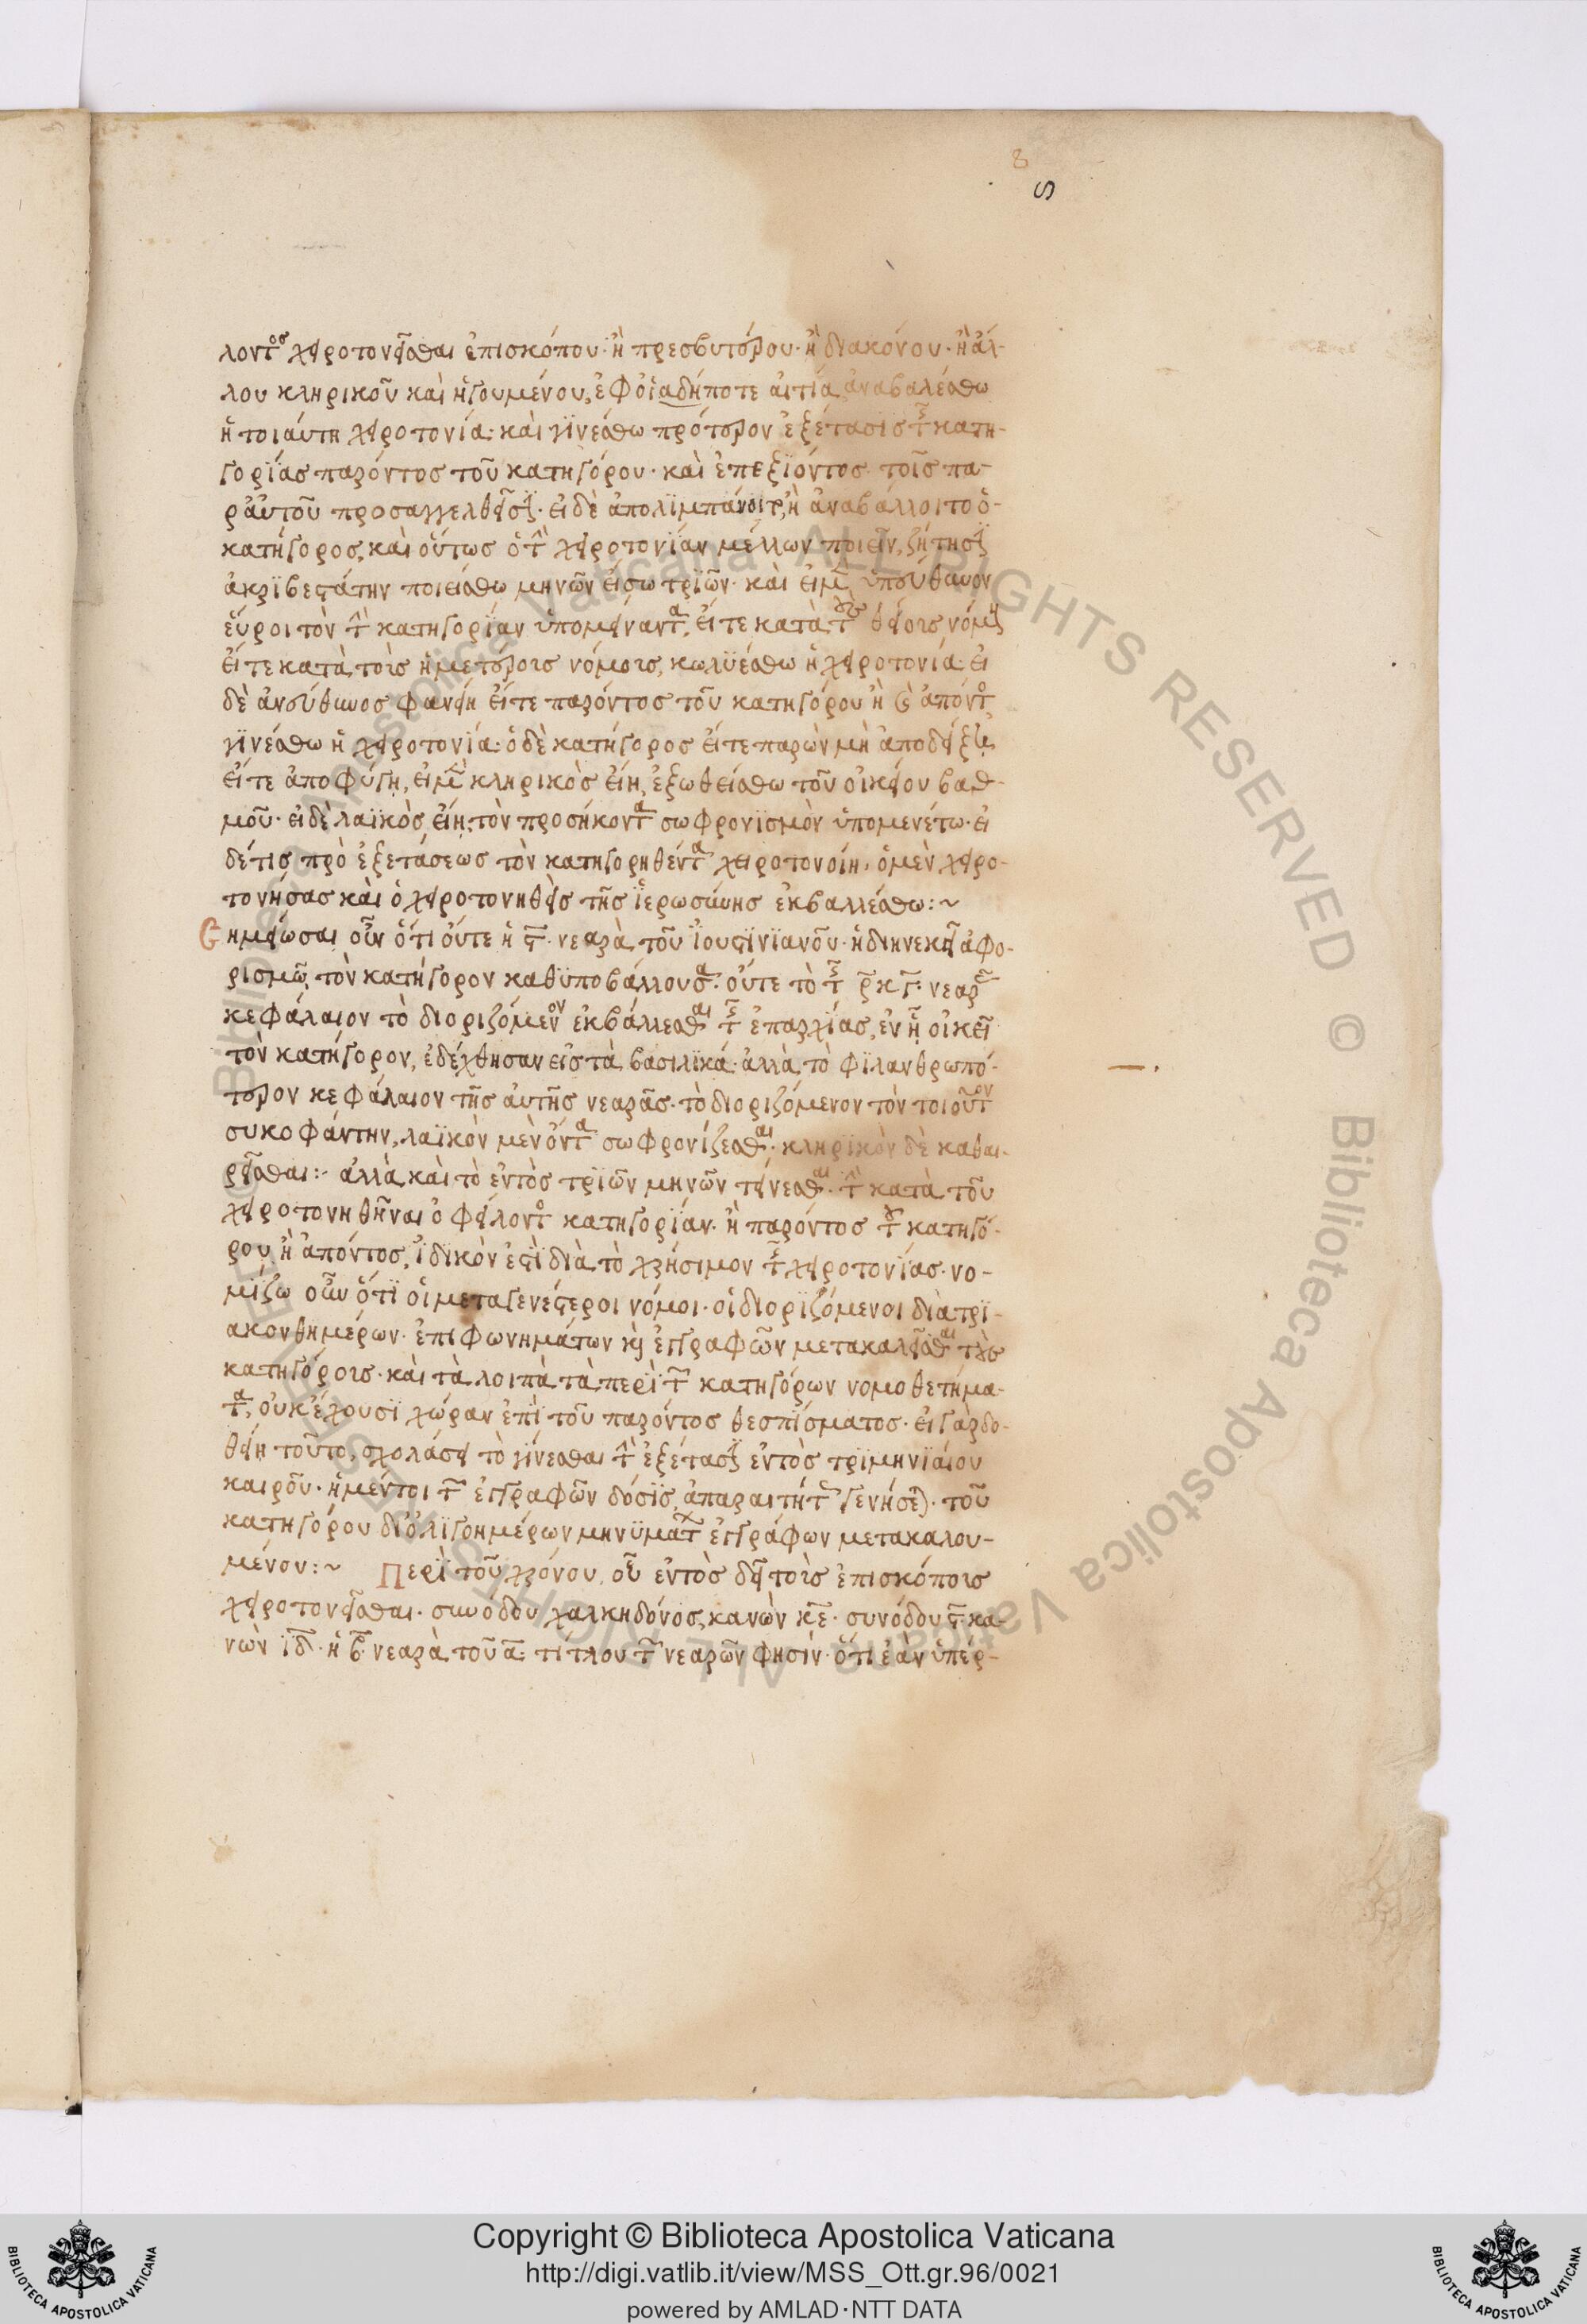 8
S
λοντος χειροτονεῖσθαι ἐπισκόπου· ἢ πρεσβυτέρου· ἢ διακόνου· ἢ ἄλ-
λου κληρικοῦ καὶ ἡγουμένου, ἐφ οἱαδήποτε αἰτία ἀναβαλέσθω
ἡ τοιαύτη χειροτονία· καὶ γϊνέσθω πρότερον ἐξέτασϊς τῆς κατη-
γορϊας παρόντος τοῦ κατηγόρου· καὶ ἐπεξϊόντος τοῖς πα-
ρ' ἀυτοῦ προσαγγελθεῖσϊν· εἰ δὲ ἀπολϊμπάνοιτο, ἢ ἀναβάλλοιτο ὁ-
κατήγορος, καὶ ὁύτως ὁ τὴν χειροτονϊαν μέλλων ποιεῖν, ζήτησϊν
ἀκρϊβεστάτην ποιείσθω μηνῶν εἴσω τρϊῶν· καὶ εἰ μὲν ὑπεύθυνον
εὕροι τὸν τὴν κατηγορϊαν ὑπομείναντα, εἴτε κατὰ τοὺς θείους νόμους
εἴτε κατὰ τοὺς ἡμετέρους νόμους, κωλϋέσθω ἡ χειροτονία· εἰ
δὲ ἀνεύθυνος φανείη εἴτε παρόντος τοῦ κατηγόρου ἢ καὶ ἀπόντος,
γϊνέσθω ἡ χειροτονία· ὁ δὲ κατήγορος εἴτε παρὼν μὴ ἀποδείξει,
εἴτε ἀποφύγη, εἰ μὲν κληρικὸς εἴη, ἐξωθείσθω τοῦ οἰκείου βαθ-
μοῦ· εἰ δὲ λαϊκὸς εἴη, τὸν προσήκοντα σωφρονϊσμὸν ὑπομενέτω· εἰ
δέ τις πρὸ ἐξετάσεως τὸν κατηγορηθέντα χειροτονοίη, ὁ μὲν χειρο-
τονήσας καὶ ὁ χειροτονηθεὶς τῆς ϊερωσύνης ἐκβαλλέσθω:~
Σημείωσαι οὖν ὅτι οὔτε ἡ ϛ· νεαρὰ τοῦ Ϊουστϊνϊανοῦ· ἡ διηνεκεῖ ἀφο-
ρισμῶ, τὸν κατήγορον καθϋποβάλλουσα· οὔτε τὸ τῆς ρκγ· νεαρᾶς
κεφάλαιον τὸ διοριζόμενον ἐκβάλλεσθαι τῆς ἐπαρχϊας, ἐν ἧ οἰκεῖ
τὸν κατήγορον, ἐδέχθησαν εἰς τὰ βασιλϊκά· ἀλλὰ τὸ φϊλανθρωπό-
τερον κεφάλαιον τῆς ἀυτῆς νεαρᾶς· τὸ διοριζόμενον τὸν τοιοῦτον
συκοφάντην, λαϊκὸν μὲν ὄντα σωφρονίζεσθαι· κληρϊκὸν δὲ καθαι-
ρεῖσθαι:· ἀλλὰ καὶ τὸ ἐντὸς τρϊῶν μηνῶν τείνεσθαι τὴν κατὰ τοῦ
χειροτονηθῆναι ὀφείλοντος κατηγορϊαν· ἢ παρόντος τοῦ κατηγό-
ρου ἢ ἀπόντος, ϊδικὸν ἐστϊ διὰ τὸ χρήσιμον τῆς χειροτονϊας· νο-
μίζω οὖν ὅτϊ οἱ μεταγενέστεροι νόμοι· οἱ διορϊζόμενοι διὰ τρϊ-
ακονθημέρων· ἐπιφωνημάτων καὶ ἐγγραφῶν μετακαλεῖσθαι τοὺς
κατηγόρους· καὶ τὰ λοιπὰ τὰ περϊ τῶν κατηγόρων νομοθετήμα-
τα, οὐκ ἔχουσϊ χώραν ἐπϊ τοῦ παρόντος θεσπϊσματος· εἰ γὰρ δο-
θείη τοῦτο, σχολάσει τὸ γίνεσθαι τὴν ἐξέτασϊν ἐντὸς τρϊμηνϊαίου
καιροῦ· ἡ μέντοι τῶν ἐγγραφῶν δόσϊς, ἀπαραιτήτως γενήσεται· τοῦ
κατηγόρου δι' ὀλϊγοημέρων μηνϋμάτων ἐγγράφων μετακαλου-
μένου:~ Περϊ τοῦ χρόνου, οὗ ἐντὸς δεῖ τοὺς ἐπισκόπους
χειροτονεῖσθαι· συνόδου χαλκηδόνος, κανὼν κε· συνόδου ϛ· κα-
νὼν ϊδ· ἡ β νεαρὰ τοῦ α τίτλου τῶν νεαρῶν φησϊν· ὅτι ἐὰν ὑπέρ-
Copyright © Biblioteca Apostolica Vaticana
http://digi.vatlib.it/view/MSS_Ott.gr.96/0021
powered by AMLAD·NTT DATA